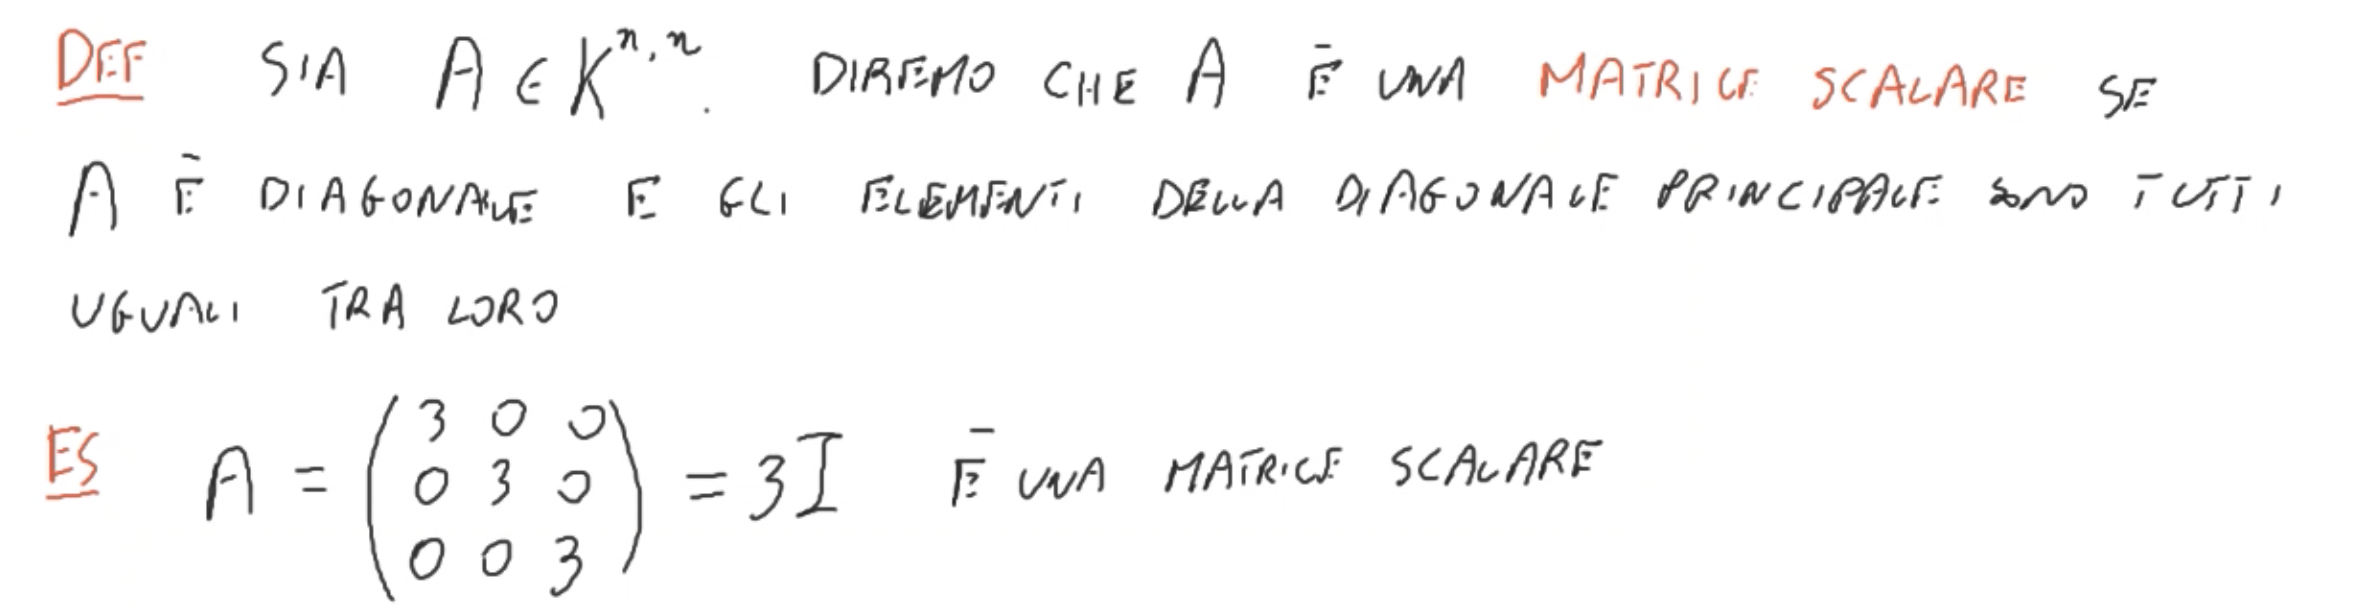 DEF SIA A ∈ K^{n,n}. DIREMO CHE A È UNA MATRICE SCALARE SE
A È DIAGONALE E GLI ELEMENTI DELLA DIAGONALE PRINCIPALE SONO TUTTI
UGUALI TRA LORO
ES A = (3 0 0
0 3 0
0 0 3) = 3I È UNA MATRICE SCALARE